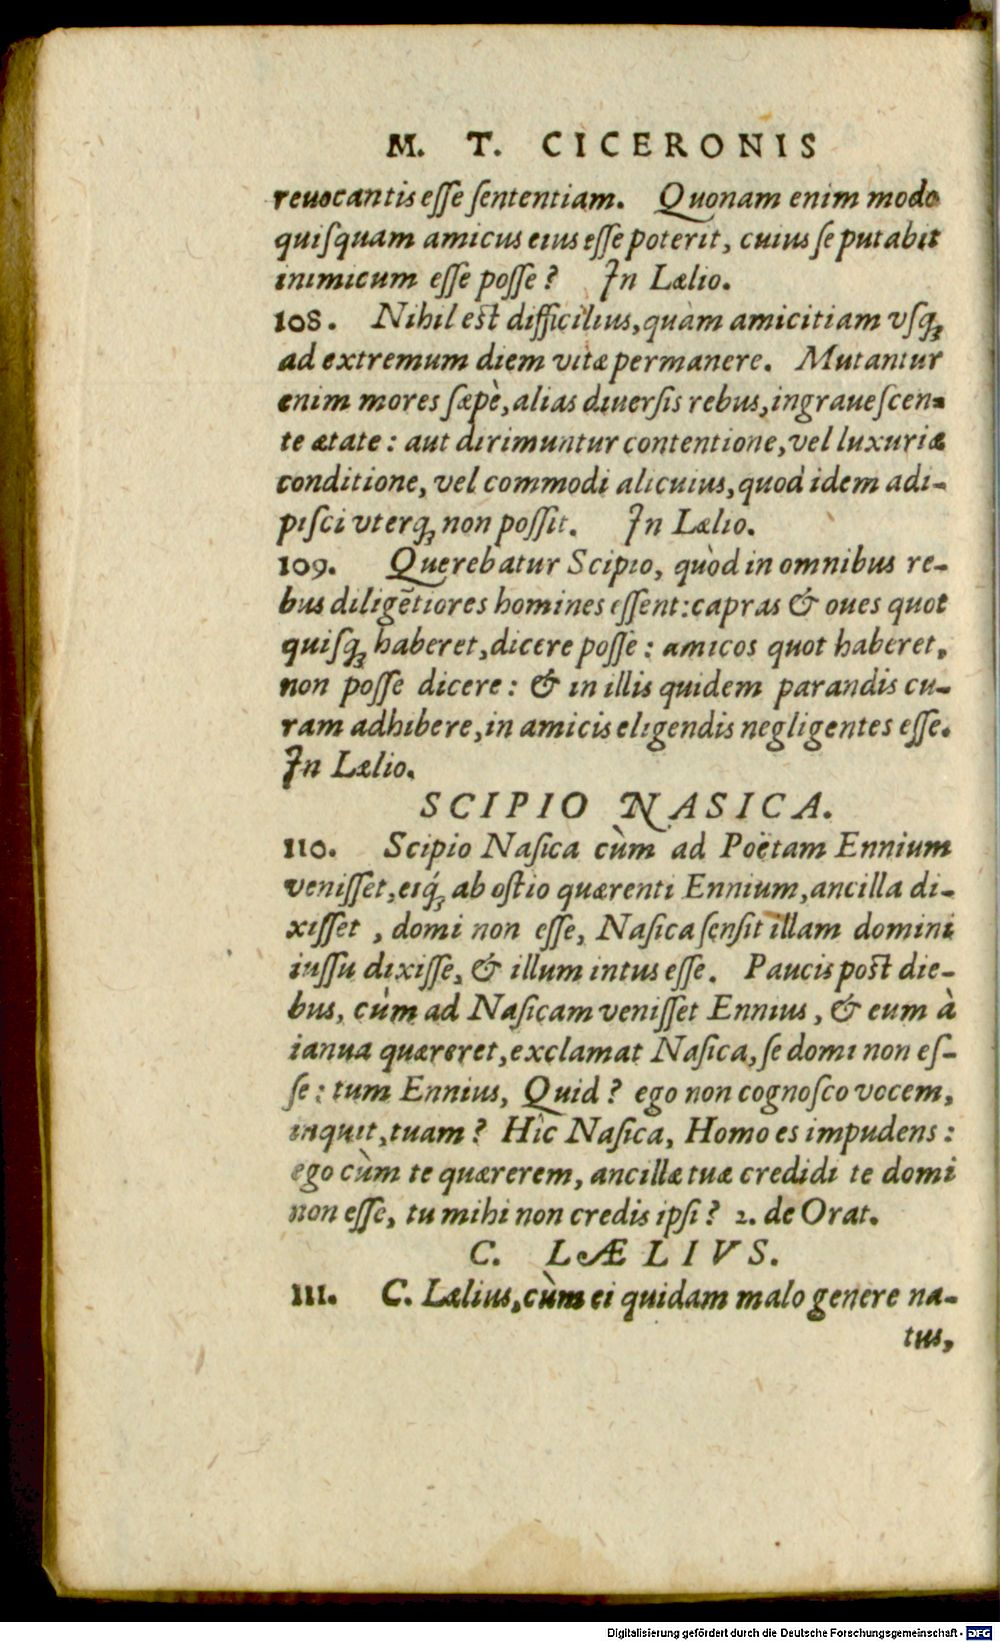 M. T. CICERONIS
reuocantis esse sententiam. Quonam enim modo
quisquam amicus eius esse poterit, cuius se putabit
inimicum esse posse? In Lælio.
108. Nihil est difficilius, quàm amicitiam vsq́
ad extremum diem vitæ permanere. Mutantur
enim mores sæpè, alias diuersis rebus, ingrauescen-
te ætate: aut dirimuntur contentione, vel luxuriæ
conditione, vel commodi alicuius, quod idem adi-
pisci vterq; non possit. In Lælio.
109. Querebatur Scipio, quòd in omnibus re-
bus diligẽtiores homines essent: capras & oues quot
quisq; haberet, dicere posse: amicos quot haberet,
non posse dicere: & in illis quidem parandis cu-
ram adhibere, in amicis eligendis negligentes esse.
In Lælio.
SCIPIO NASICA.
110. Scipio Nasica cùm ad Poëtam Ennium
venisset, eiq́; ab ostio quærenti Ennium, ancilla di-
xisset, domi non esse, Nasica sensit illam domini
iussu dixisse, & illum intus esse. Paucis post die-
bus, cùm ad Nasicam venisset Ennius, & eum à
ianua quæreret, exclamat Nasica, se domi non es-
se: tum Ennius, Quid? ego non cognosco vocem,
inquit, tuam? Hîc Nasica, Homo es impudens:
ego cùm te quærerem, ancillæ tuæ credidi te domi
non esse, tu mihi non credis ipsi? 2. de Orat.
C. LÆLIVS.
111. C. Lælius, cùm ei quidam malo genere na-
tus,
Digitalisierung gefördert durch die Deutsche Forschungsgemeinschaft - DFG